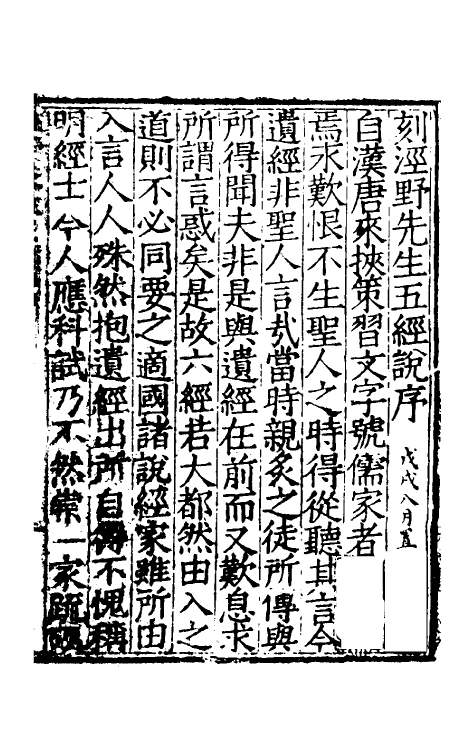 刻涇野先生五經說序 戊戌八月置
自漢唐來挾策習文字號儒家者
焉永歎恨不生聖人之時得從聽其言今
遺經非聖人言㢤當時親炙之徒所傳與
所得聞夫非是與遺經在前而又歎息求
所謂言惑矣是故六經若大都然由入之
道則不必同要之適國諸說經家雖所由
入言人人殊然抱遺經出所自得不愧稱
明經士兮人應科試乃不然崇一家疏